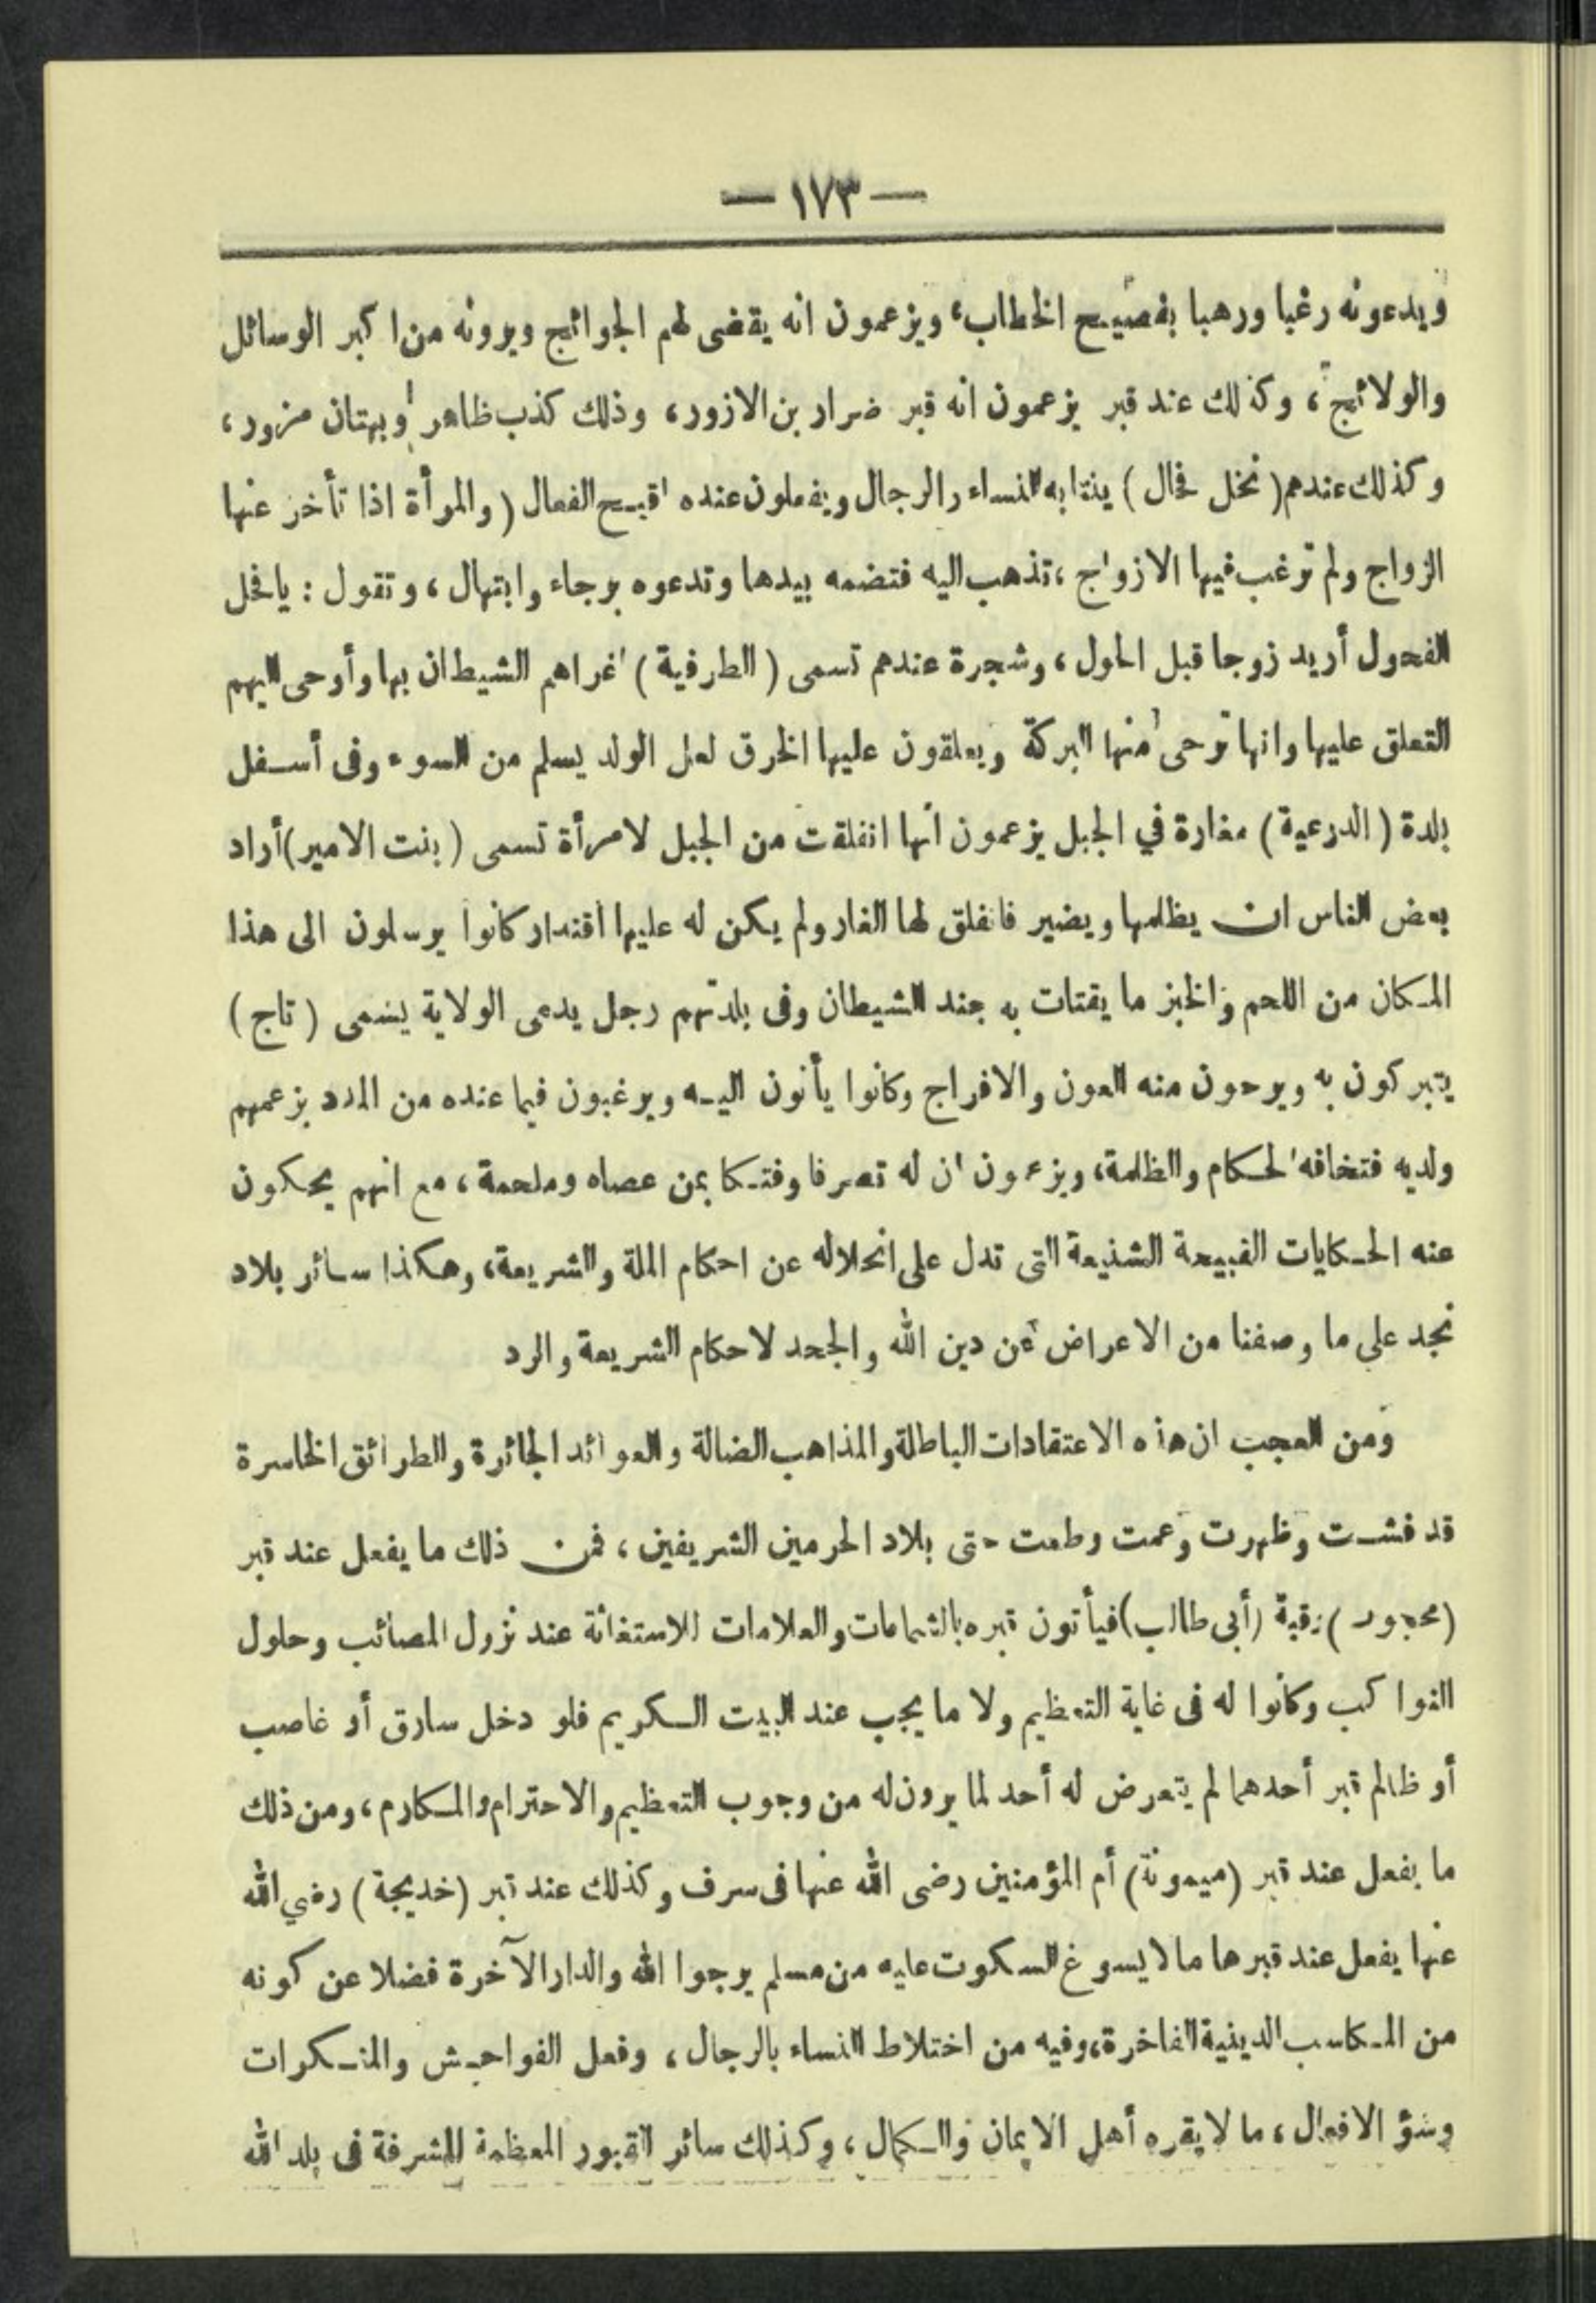 — ١٧٣ —
ويدعونه رغبا ورهبا بفصيح الخطاب، ويزعمون انه يقضى لهم الحوائج ويرونه من اكبر الوسائل
والولائج، وكذلك عند قبر يزعمون انه قبر ضرار بن الازور، وذلك كذب ظاهر وبهتان مزور،
وكذلك عندهم ( نخل فحال ) ينتابه النساء والرجال ويفعلون عنده اقبح الفعال ( والمرأة اذا تأخر عنها
الزواج ولم ترغب فيها الازواج ، تذهب اليه فتضمه بيدها وتدعوه برجاء وابتهال ، وتقول : يا فحل
الفحول أريد زوجا قبل الحول ، وشجرة عندهم تسمى ( الطرفية ) اغراهم الشيطان بها وأوحى اليهم
التعلق عليها وانها ترحى منها البركة ويعلقون عليها الخرق لعل الولد يسلم من السوء وفى أسفل
بلدة ( الدرعية ) مغارة في الجبل يزعمون انها انفلقت من الجبل لامرأة تسمى ( بنت الامير ) أراد
بعض الناس ان يظلمها ويضير فانفلق لها الغار ولم يكن له عليها اقتدار كانوا يرسلون الى هذا
المكان من اللحم والخبز ما يقتات به جند الشيطان وفى بلدتهم رجل يدعى الولاية يسمى ( تاج )
يتبركون به ويرحون منه العون والافراج وكانوا يأتون اليه ويرغبون فيما عنده من المدد بزعمهم
ولديه فتخافه الحكام والظلمة، ويزعمون ان له تصرفا وفتكا بمن عصاه وملحمة ، مع انهم يحكون
عنه الحكايات القبيحة الشنيعة التى تدل على انحلاله عن احكام الملة والشريعة، وهكذا سائر بلاد
نجد على ما وصفنا من الاعراض عن دين الله والجحد لاحكام الشريعة والرد
ومن العجب ان هذه الاعتقادات الباطلة والمذاهب الضالة والعوائد الجائرة والطرائق الخاسرة
قد فشت وظهرت وعمت وطمت حتى بلاد الحرمين الشريفين ، فمن ذلك ما يفعل عند قبر
(محجوب) وقبة (أبى طالب) فيأتون قبره بالشماعات والعلامات للاستغاثة عند نزول المصائب وحلول
النواكب وكانوا له فى غاية التعظيم ولا ما يجب عند البيت الكريم فلو دخل سارق أو غاصب
أو ظالم قبر أحدهما لم يتعرض له أحد لما يرون له من وجوب التعظيم والاحترام والمكارم ، ومن ذلك
ما يفعل عند قبر (ميمونة) أم المؤمنين رضى الله عنها فى سرف وكذلك عند قبر (خديجة) رضي الله
عنها يفعل عند قبرها مالا يسوغ السكوت عليه من مسلم يرجوا الله والدار الآخرة فضلا عن كونه
من المكاسب الدينية الفاخرة، وفيه من اختلاط النساء بالرجال ، وفعل الفواحش والمنكرات
وسؤ الافعال ، ما لا يقره أهل الايمان والكمال ، وكذلك سائر القبور المعظمة المشرفة فى بلد الله